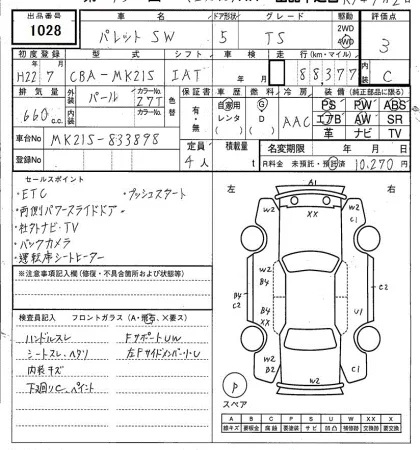 出品番号 車名 ドア形状 グレード 駆動 評価点
1028 パレットSW 5 TS 2WD 4WD 3
初度登録 型式 シフト 車検 走行(km・マイル)
H22年7月 CBA-MK21S IAT 年 月 88377 C
排気量 外装 パール カラーNo. Z7T 色替 保証書 車歴 燃料 冷房 装備(純正部品に限る)
660 c.c. 内装 カラーNo. 有・無 自家用 レンタ G D AAC PS PW ABS
エアB AW SR
革 ナビ TV
車台No MK21S-833898 定員 4人 積載量 t 名変期限 年 月 日
登録No R料金 未預託・預託済 10,270円
セールスポイント
・ETC ・プッシュスタート
・両側パワースライドドア
・社外ナビ・TV
・バックカメラ
・運転席シートヒーター
※注意事項記入欄(修復・不具合箇所および状態等)
検査員記入 フロントガラス(A・飛石、×要ス)
ハンドルスレ FサポートUW
シートスレ、ヘタリ 左Fサイドメンバー・U
内装キズ
下廻りC、ペイント
左 右
A1
W2 XX C1
W2 C1
B4 C2 W2 B4 C2
B4 XX U1
W2 B2 C1
W2
P
スペア
A B C P S U W X XX
線キズ 要板金 腐蝕 要塗装 サビ 凹凸 補修跡 交換跡 要交換